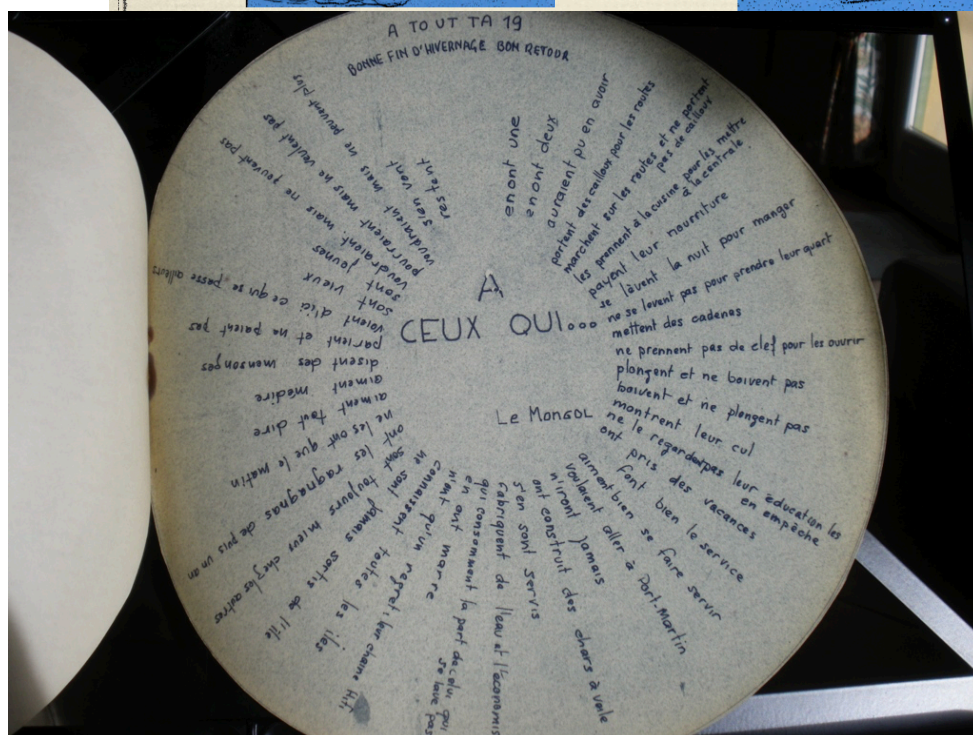 A TOUT TA 19
BONNE FIN D'HIVERNAGE BON RETOUR
A
CEUX QUI...
en ont une
en ont deux
auraient pu en avoir
portent des cailloux pour les routes
marchent sur les routes et ne portent
pas de cailloux
les prennent à la cuisine pour les mettre
à la centrale
payent leur nourriture
se lèvent la nuit pour manger
ne se lèvent pas pour prendre leur quart
mettent des cadenas
ne prennent pas de clef pour les ouvrir
plongent et ne boivent pas
boivent et ne plongent pas
montrent leur cul
ne le regardent pas leur éducation les
en empêche
ont pris des vacances
font bien le service
aiment bien se faire servir
voulaient aller à Port-Martin
n'iront jamais
ont construit des chars à voile
s'en sont servis
fabriquent de l'eau et l'économis
qui consomment la part de celui qui
se lave pas
en ont marre
n'ont qu'un regret: leur chaine Hifi
connaissent toutes les îles
ne sont jamais sortis de l'île
sont toujours mieux chez les autres
ont les ragnagnas depuis un an
ne les ont que le matin
aiment tout dire
aiment médire
disent des mensonges
parient et ne paient pas
voient d'ici ce qui se passe ailleurs
sont vieux
sont jeunes
voudraient mais ne peuvent pas
pourraient mais ne veulent pas
voudraient mais ne peuvent plus
s'en vont
restent
Le Mongol